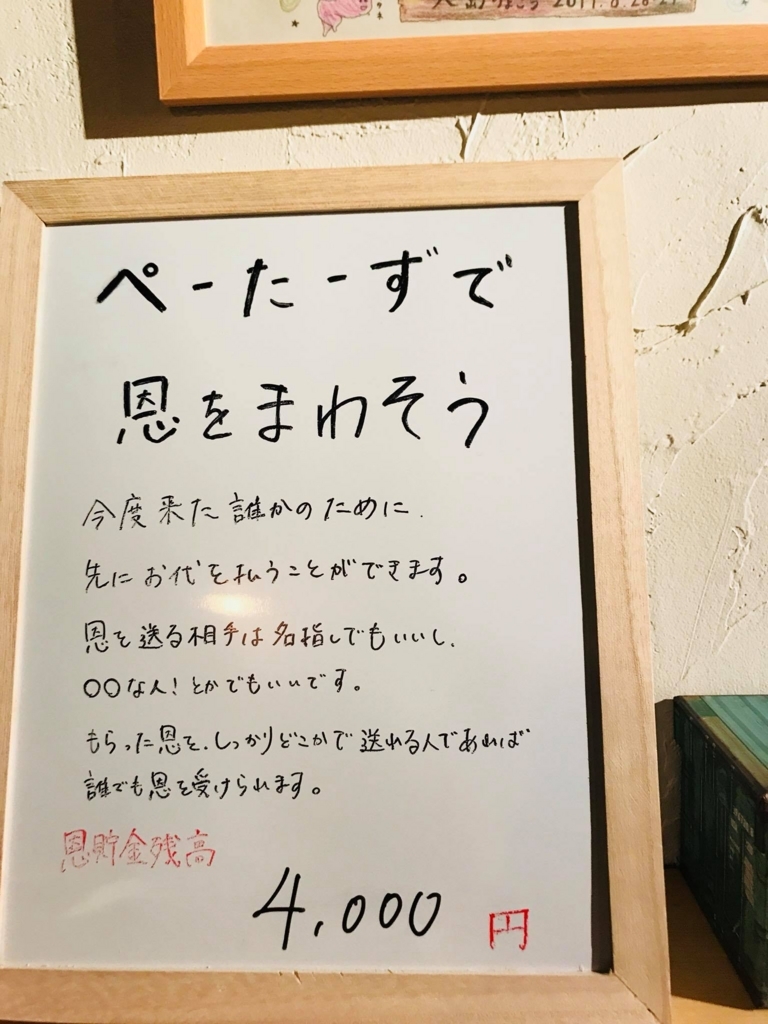 2017.8.26-27
ぺーたーずで
恩をまわそう
今度来た誰かのために、
先にお代を払うことができます。
恩を送る相手は名指しでもいいし、
○○な人！とかでもいいです。
もらった恩を、しっかりどこかで送れる人であれば
誰でも恩を受けられます。
恩貯金残高
4,000円